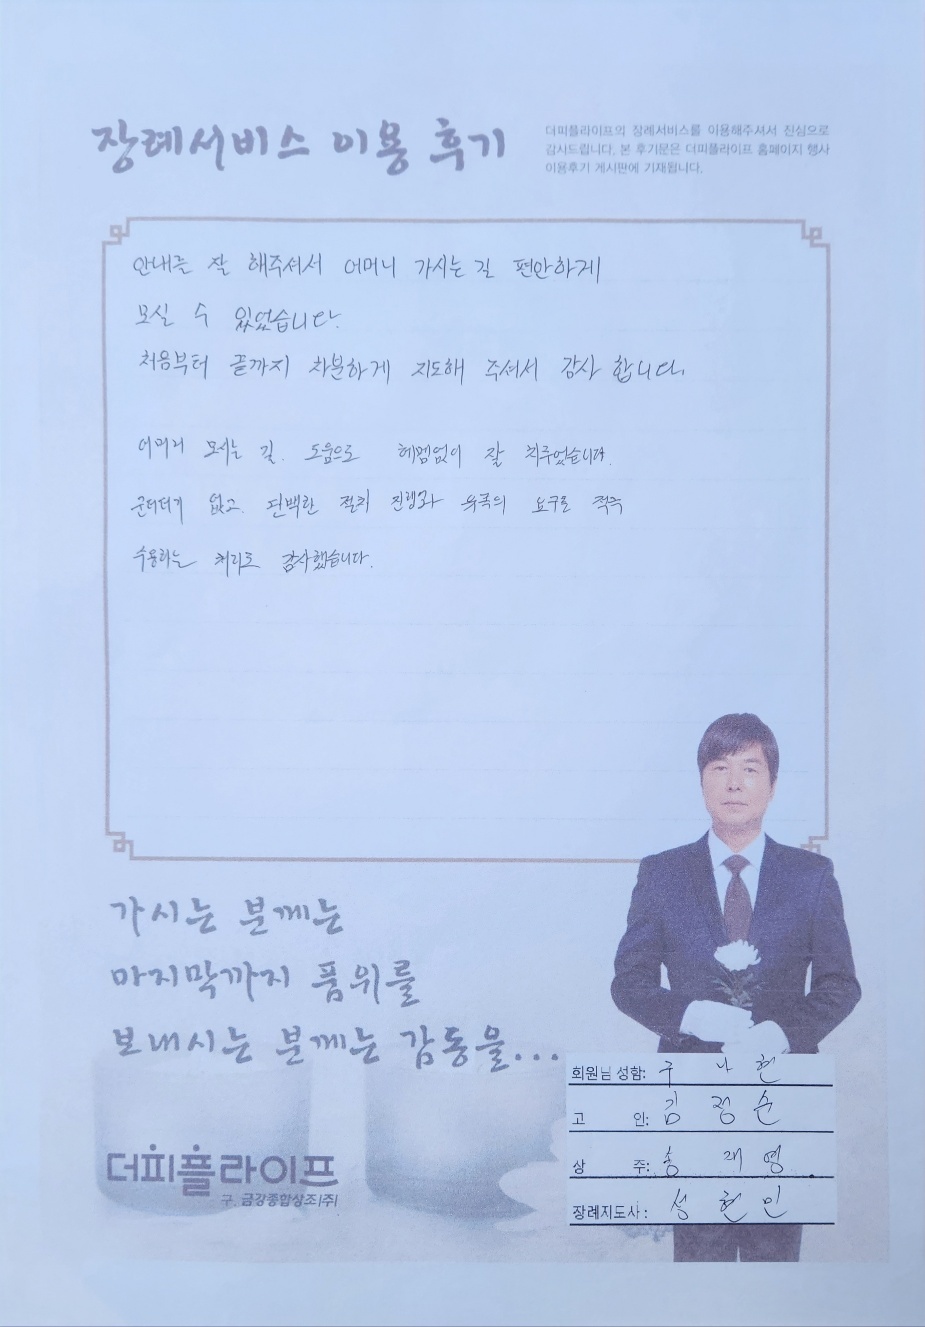 장례서비스 이용 후기
더피플라이프의 장례서비스를 이용해주셔서 진심으로
감사드립니다. 본 후기문은 더피플라이프 홈페이지 행사
이용후기 게시판에 기재됩니다.
안내를 잘 해주셔서 어머니 가시는 길 편안하게
모실 수 있었습니다.
처음부터 끝까지 차분하게 지도해 주셔서 감사 합니다.
어머니 모시는 길. 도움으로 헤멤없이 잘 치루었습니다.
군더더기 없고. 담백한 절차 진행과 유족의 요구를 적극
수용하는 처리도 감사했습니다.
가시는 분께는
마지막까지 품위를
보내시는 분께는 감동을...
더피플라이프
구. 금강종합상조(주)
회원님 성함: 구 나 현
고 인: 김 정 순
상 주: 홍 재 영
장례지도사: 성 현 민